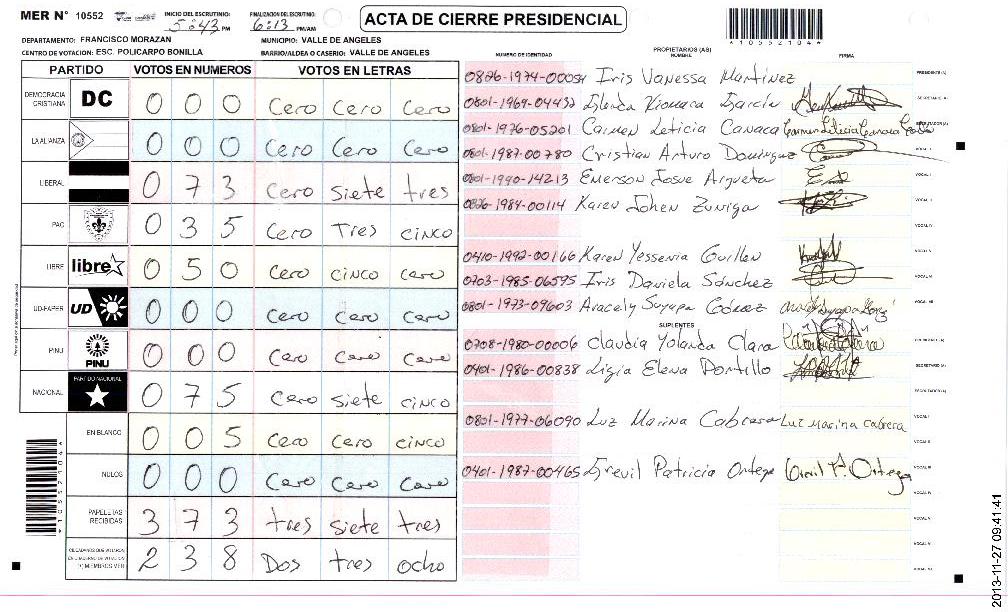 MER N° 10552
INICIO DEL ESCRUTINIO: 5:43 PM
FINALIZACION DEL ESCRUTINIO: 6:13 PM/AM
ACTA DE CIERRE PRESIDENCIAL
*105521041*
DEPARTAMENTO: FRANCISCO MORAZAN
MUNICIPIO: VALLE DE ANGELES
CENTRO DE VOTACION: ESC. POLICARPO BONILLA
BARRIO/ALDEA O CASERIO: VALLE DE ANGELES
PARTIDO VOTOS EN NUMEROS VOTOS EN LETRAS
DEMOCRACIA CRISTIANA DC 0 0 0 Cero Cero Cero
LA ALIANZA 0 0 0 Cero Cero Cero
LIBERAL 0 7 3 Cero siete tres
PAC 0 3 5 Cero Tres cinco
LIBRE libre 0 5 0 Cero cinco cero
UD-FAPER UD 0 0 0 Cero Cero Cero
PINU PINU 0 0 0 Cero Cero Cero
NACIONAL PARTIDO NACIONAL 0 7 5 Cero siete cinco
EN BLANCO 0 0 5 Cero Cero cinco
NULOS 0 0 0 Cero Cero Cero
PAPELETAS RECIBIDAS 3 7 3 tres siete tres
CIUDADANOS QUE VOTARON EN CUADERNO DE VOTACION (+) MIEMBROS MER 2 3 8 Dos tres ocho
NUMERO DE IDENTIDAD PROPIETARIOS (AS) NOMBRE FIRMA
0826-1974-00054 Iris Vanessa Martinez PRESIDENTE (A)
0801-1964-04432 Glenda Xiomara Garcia SECRETARIO (A)
0801-1976-05201 Carmen Leticia Canaca Carmen Leticia Canaca
0801-1987-00780 Cristian Arturo Dominguez VOCAL I
0801-1990-14213 Emerson Josue Argueta VOCAL II
0826-1984-00114 Karen Johen Zuniga VOCAL III
VOCAL IV
0410-1992-00166 Karen Yessenia Guillen VOCAL V
0703-1985-06595 Iris Daniela Sánchez VOCAL VI
0801-1973-09603 Aracely Suyapa Gómez VOCAL VII
SUPLENTES
0708-1980-00006 Claudia Yolanda Clara
0401-1986-00838 Ligia Elena Portillo SECRETARIO (A)
0801-1977-06090 Luz Marina Cabrera Luz Marina Cabrera VOCAL I
VOCAL II
0401-1987-00465 Grevil Patricia Ortega VOCAL III
VOCAL IV
VOCAL V
VOCAL VI
VOCAL VII
*105521041*
2013-11-27 09:41:41